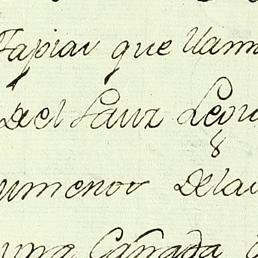 Tapiar que llam
Del Sauz Leon
8
umenor Dela
una Cañada